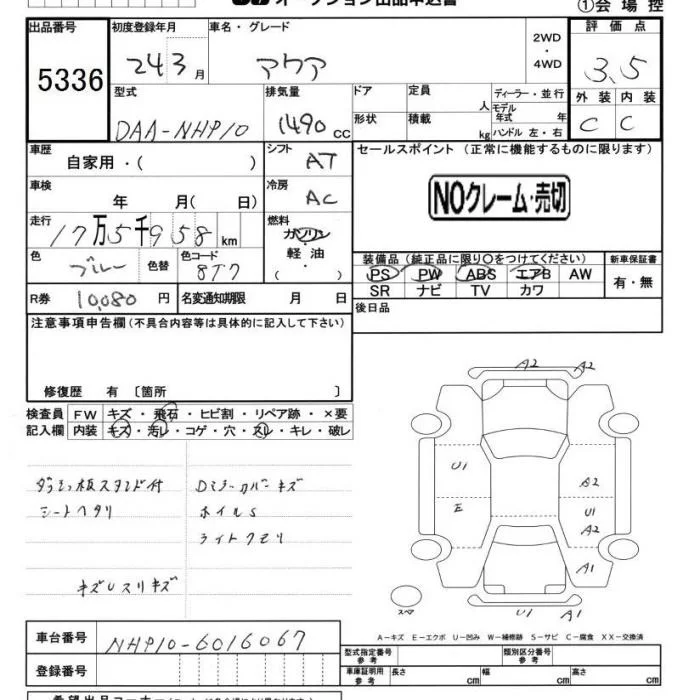 オークション出品申込書
①会場控
出品番号 初度登録年月 車名・グレード 2WD・4WD 評価点
5336 24 3月 アクア 3.5
型式 排気量 ドア 定員 人 ディーラー・並行 外装 内装
DAA-NHP10 1490cc 形状 積載 kg モデル年式 年 ハンドル 左・右 C C
車歴 自家用・( ) シフト AT セールスポイント (正常に機能するものに限ります)
車検 年 月( 日) 冷房 AC NOクレーム・売切
走行 17万5千958km 燃料 ガソリン・軽油
装備品 (純正品に限り○をつけてください) 新車保証書
色 ブルー 色替 色コード 8T7 PS PW ABS エアB AW 有・無
SR ナビ TV カワ
R券 10,080円 名変通知期限 月 日 後日品
注意事項申告欄(不具合内容等は具体的に記入して下さい)
修復歴 有 〔箇所 〕
検査員記入欄 FW キズ・飛石・ヒビ割・リペア跡・×要
内装 キズ・汚レ・コゲ・穴・ヌレ・キレ・破レ
A2 A2
U1 A2
E U1
A2
A1
U1 A1
スペア
ダッシュ板スタンド付 Dミラーカバーキズ
シートヘタリ ホイルS
ライトクモリ
キズUスリキズ
A-キズ E-エクボ U-凹み W-補修跡 S-サビ C-腐食 XX-交換済
車台番号 NHP10-6016067
型式指定番号 参考 類別区分番号 参考
登録番号 車庫証明用 参考 長さ cm 幅 cm 高さ cm